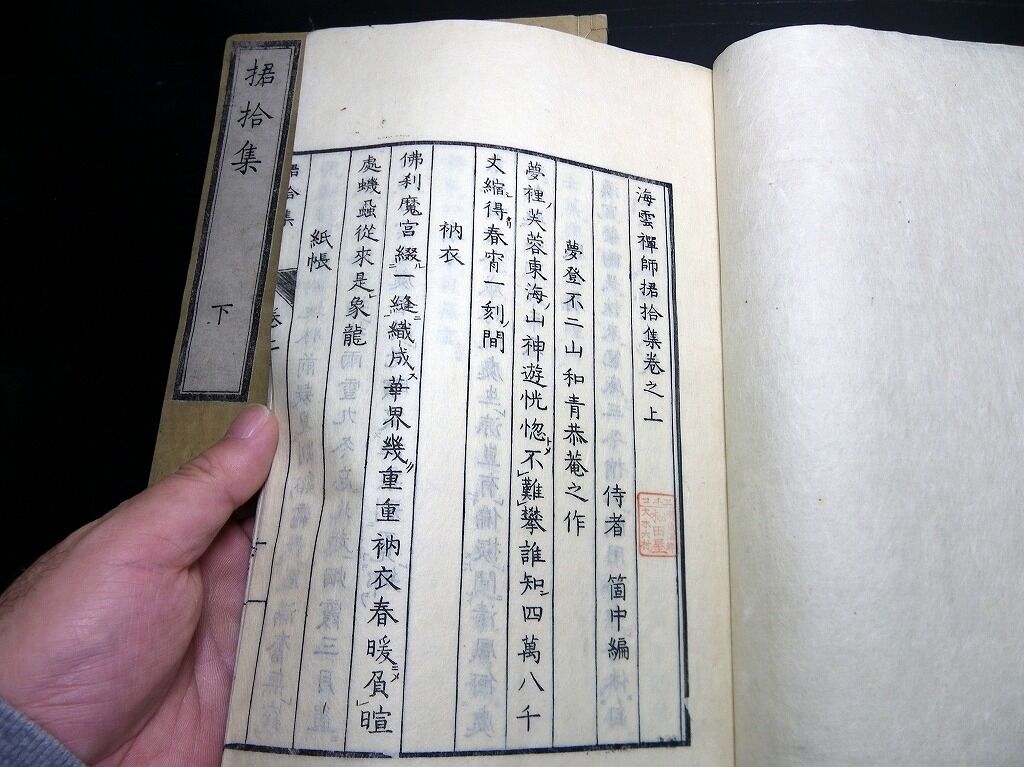 海雲禪師捃拾集卷之上
侍者 箇中編
夢登不二山和青恭菴之作
夢裡芙蓉東海山神遊恍惚不難攀誰知四萬八千
丈縮得春宵一刻間
衲衣
佛利魔宮綴一縫織成華界幾重重衲衣春暖負暄
處蟣蝨從來是象龍
紙帳
捃拾集
下